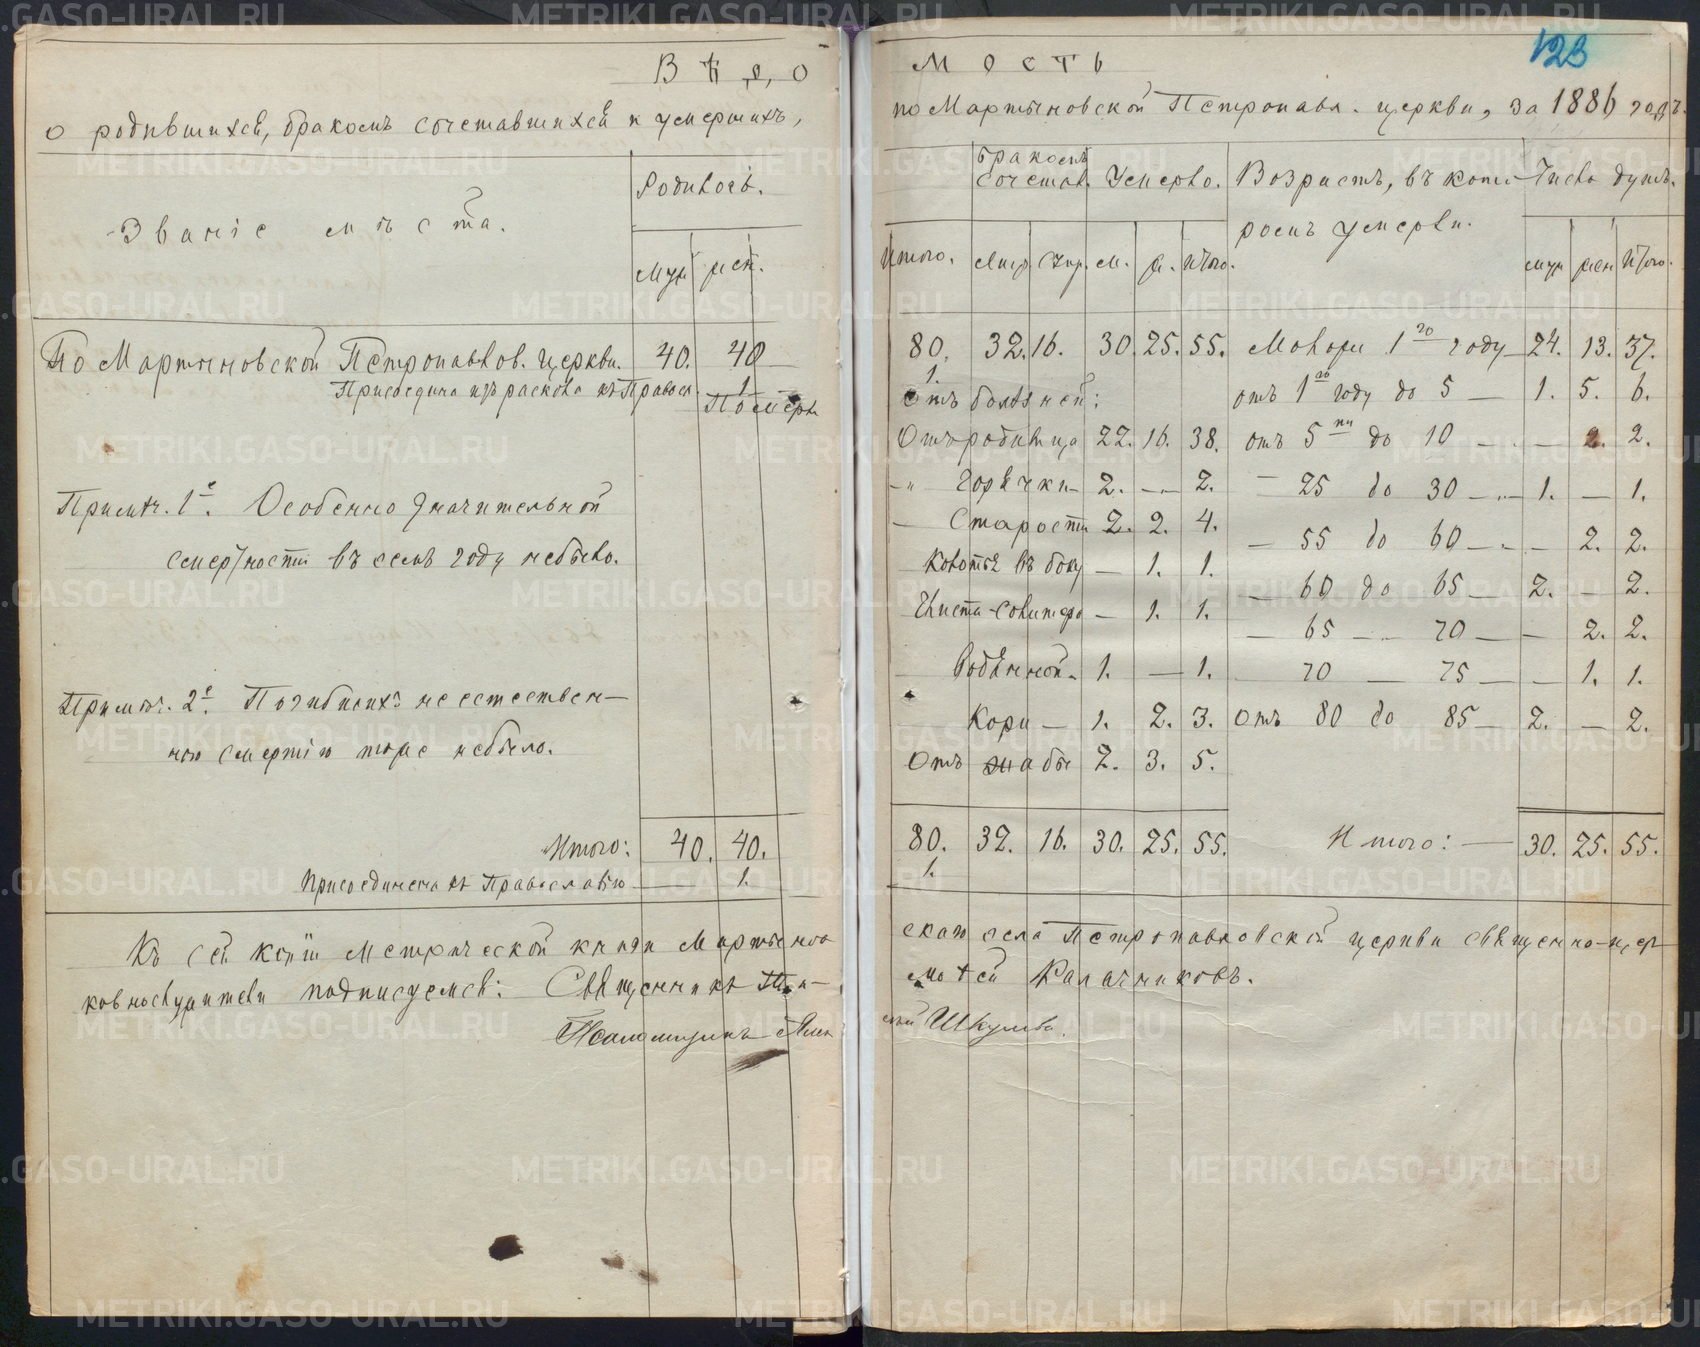 Вѣдо
о родившихся, бракомъ сочетавшихся и умершихъ,
Званіе мѣста.
Родилось.
муж жен.
По Мартыновской Петропавлов. церкви. 40. 40
Присоедине изъ раскола къ Правосл. 1.
Померш
Примѣч. 1е. Особенно значительной
смертности въ семъ году небыло.
Примѣч. 2е. Погибшихъ неестествен-
ною смертію тоже небыло.
Итого: 40. 40.
Присоединена къ Православію 1.
Къ сей копіи метрической книги Мартынов
подписуемся: Священникъ Ти-
Псаломщикъ Алек
123
мость
по Мартыновской Петропавл. церкви, за 1886 годъ.
Бракомъ сочетав. Умерло. Возрастъ, въ кото- Число душъ.
ромъ умерли.
Итого. м. ж. Итого. муж жен Итого.
80. 32. 16. 30. 25. 55. 1го году 24. 13. 37.
1.
Отъ болѣзней: отъ 1го году до 5 — 1. 5. 6.
Отъ родимца 22. 16. 38. отъ 5ти до 10 — — 2. 2.
—„ Горячки — 2. — 2. — 25 до 30 — 1. — 1.
— Старости 2. 2. 4. — 55 до 60 — — 2. 2.
Колотья въ боку — 1. 1. — 60 до 65 — 2. — 2.
— 1. 1. — 65 — 70 — — 2. 2.
Водяной. 1. — 1. — 70 — 75 — — 1. 1.
Кори — 1. 2. 3. Отъ 80 до 85 — 2. — 2.
Отъ жабы 2. 3. 5.
80. 32. 16. 30. 25. 55. Итого: — 30. 25. 55.
1.
скаго села Петропавловской церкви священно-цер-
моѳей Калачниковъ.
сѣй Шкулевъ.
METRIKI.GASO-URAL.RU